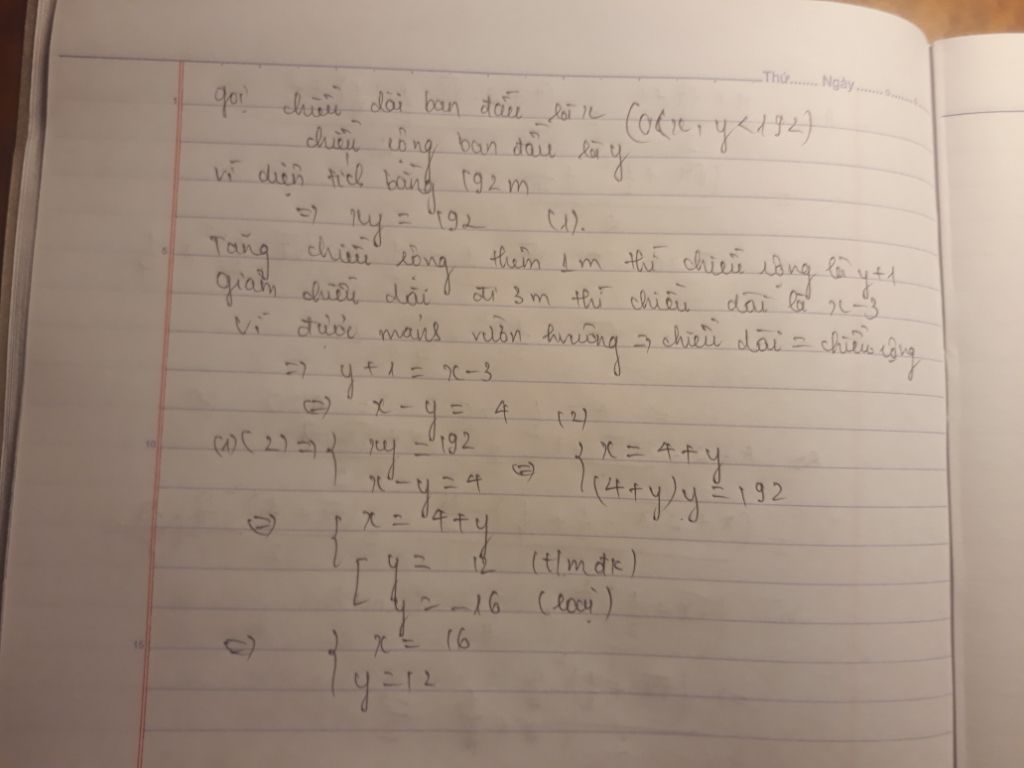 Thứ...... Ngày............
gọi chiều dài ban đầu là x (0<x, y<192)
chiều rộng ban đầu là y
vì diện tích bằng 192 m
=> xy = 192 (1).
Tăng chiều rộng thêm 1m thì chiều rộng là y+1
giảm chiều dài đi 3m thì chiều dài là x-3
Vì được mảnh vườn hvuông => chiều dài = chiều rộng
=> y + 1 = x - 3
<=> x - y = 4 (2)
10 (1) (2) => { xy = 192 x - y = 4 <=> { x = 4 + y (4+y)y = 192
<=> { x = 4+y
[ y = 12 (t/m đk)
y = -16 (loại)
15 <=> { x = 16
y = 12